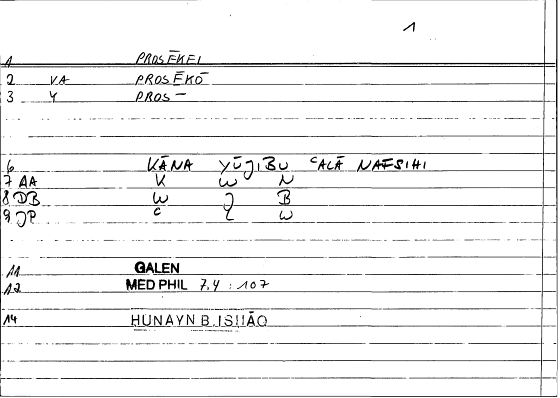 1
1 PROSĒKEI
2 VA PROSĒKŌ
3 Y PROS–
6 KĀNA YŪJIBU ʿALĀ NAFSIHI
7 AA K W N
8 DB W J B
9 JP C L W
11 GALEN
12 MED PHIL 7,4 : 107
14 HUNAYN B. ISHĀQ